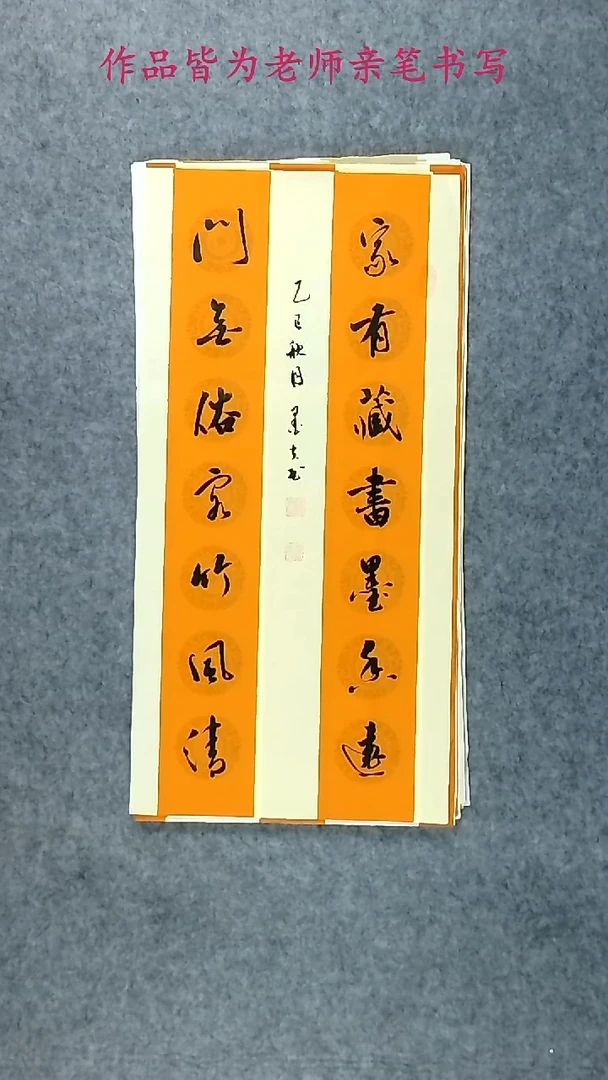 作品皆为老师亲笔书写
家有藏書墨香遠
門無俗客竹風清
乙巳秋月